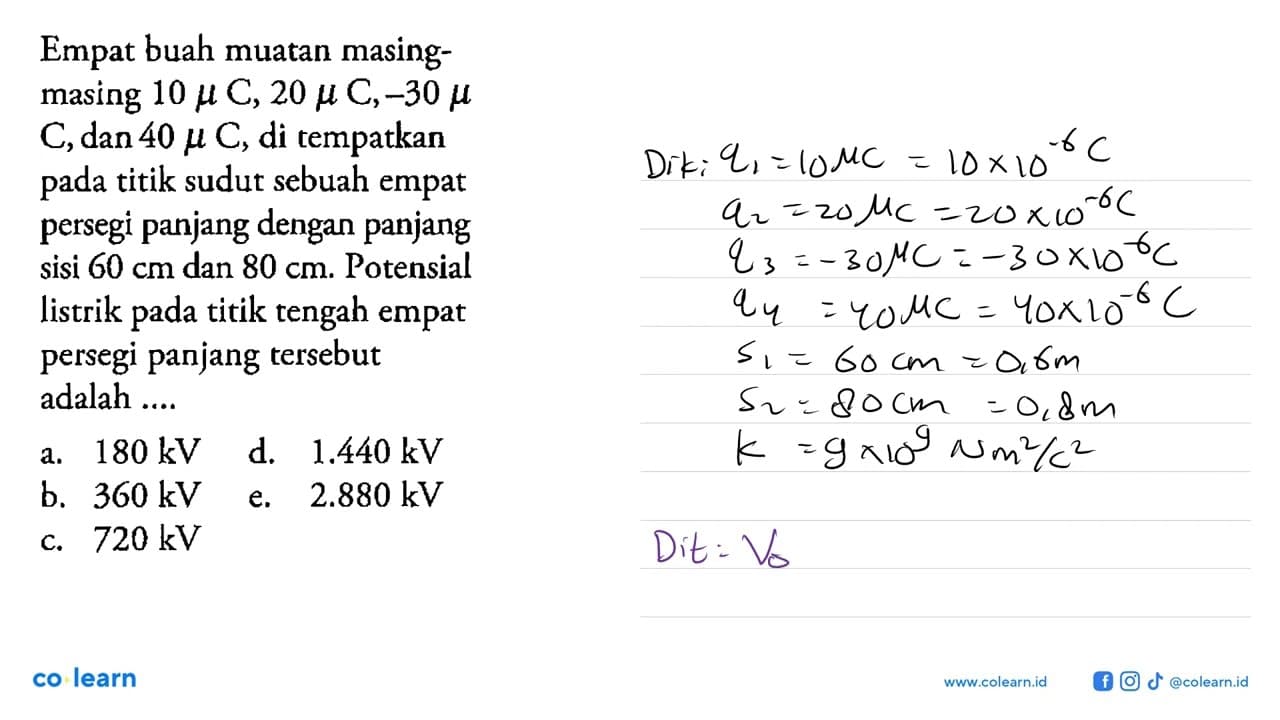 Empat buah muatan masing-
masing 10 μ C, 20 μ C, –30 μ
C, dan 40 μ C, di tempatkan
pada titik sudut sebuah empat
persegi panjang dengan panjang
sisi 60 cm dan 80 cm. Potensial
listrik pada titik tengah empat
persegi panjang tersebut
adalah ....
a. 180 kV d. 1.440 kV
b. 360 kV e. 2.880 kV
c. 720 kV
Dik: q₁ = 10 μC = 10 × 10⁻⁶ C
q₂ = 20 μC = 20 × 10⁻⁶ C
q₃ = -30 μC = -30 × 10⁻⁶ C
q₄ = 40 μC = 40 × 10⁻⁶ C
s₁ = 60 cm = 0,6 m
s₂ = 80 cm = 0,8 m
k = 9 × 10⁹ Nm²/C²
Dit: V₀
co learn
www.colearn.id @colearn.id